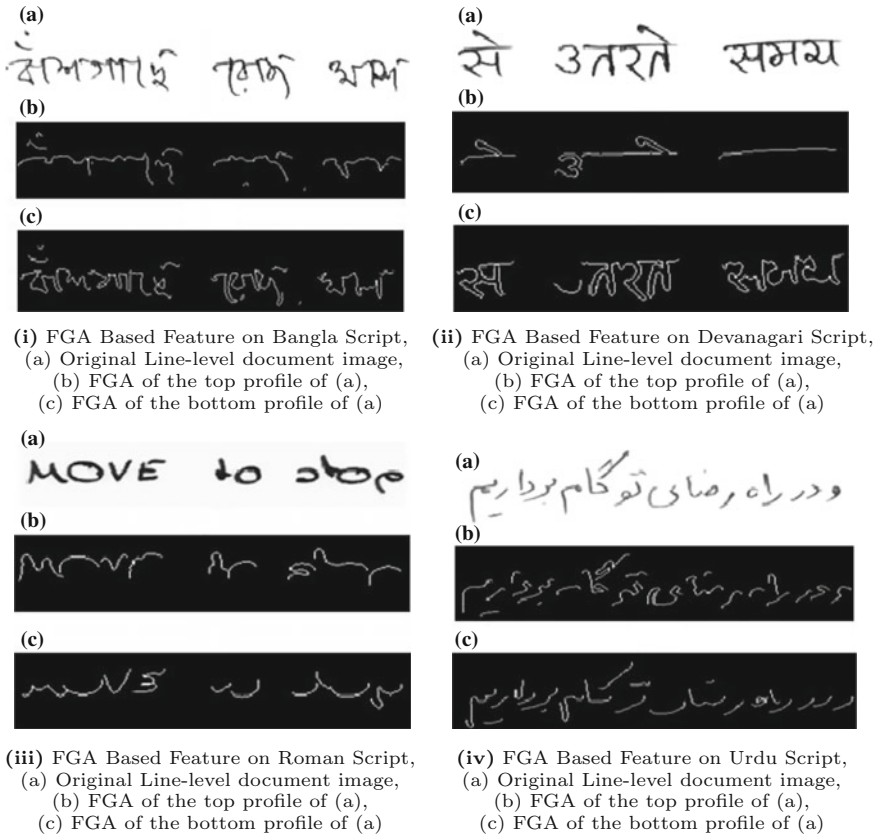 (a)
বাঁশগাছে
(b)
(c)
(i) FGA Based Feature on Bangla Script,
(a) Original Line-level document image,
(b) FGA of the top profile of (a),
(c) FGA of the bottom profile of (a)
(a)
से उतरते समय
(b)
(c)
(ii) FGA Based Feature on Devanagari Script,
(a) Original Line-level document image,
(b) FGA of the top profile of (a),
(c) FGA of the bottom profile of (a)
(a)
MOVE to stop
(b)
(c)
(iii) FGA Based Feature on Roman Script,
(a) Original Line-level document image,
(b) FGA of the top profile of (a),
(c) FGA of the bottom profile of (a)
(a)
و در راه رضای تو گام برداریم
(b)
(c)
(iv) FGA Based Feature on Urdu Script,
(a) Original Line-level document image,
(b) FGA of the top profile of (a),
(c) FGA of the bottom profile of (a)